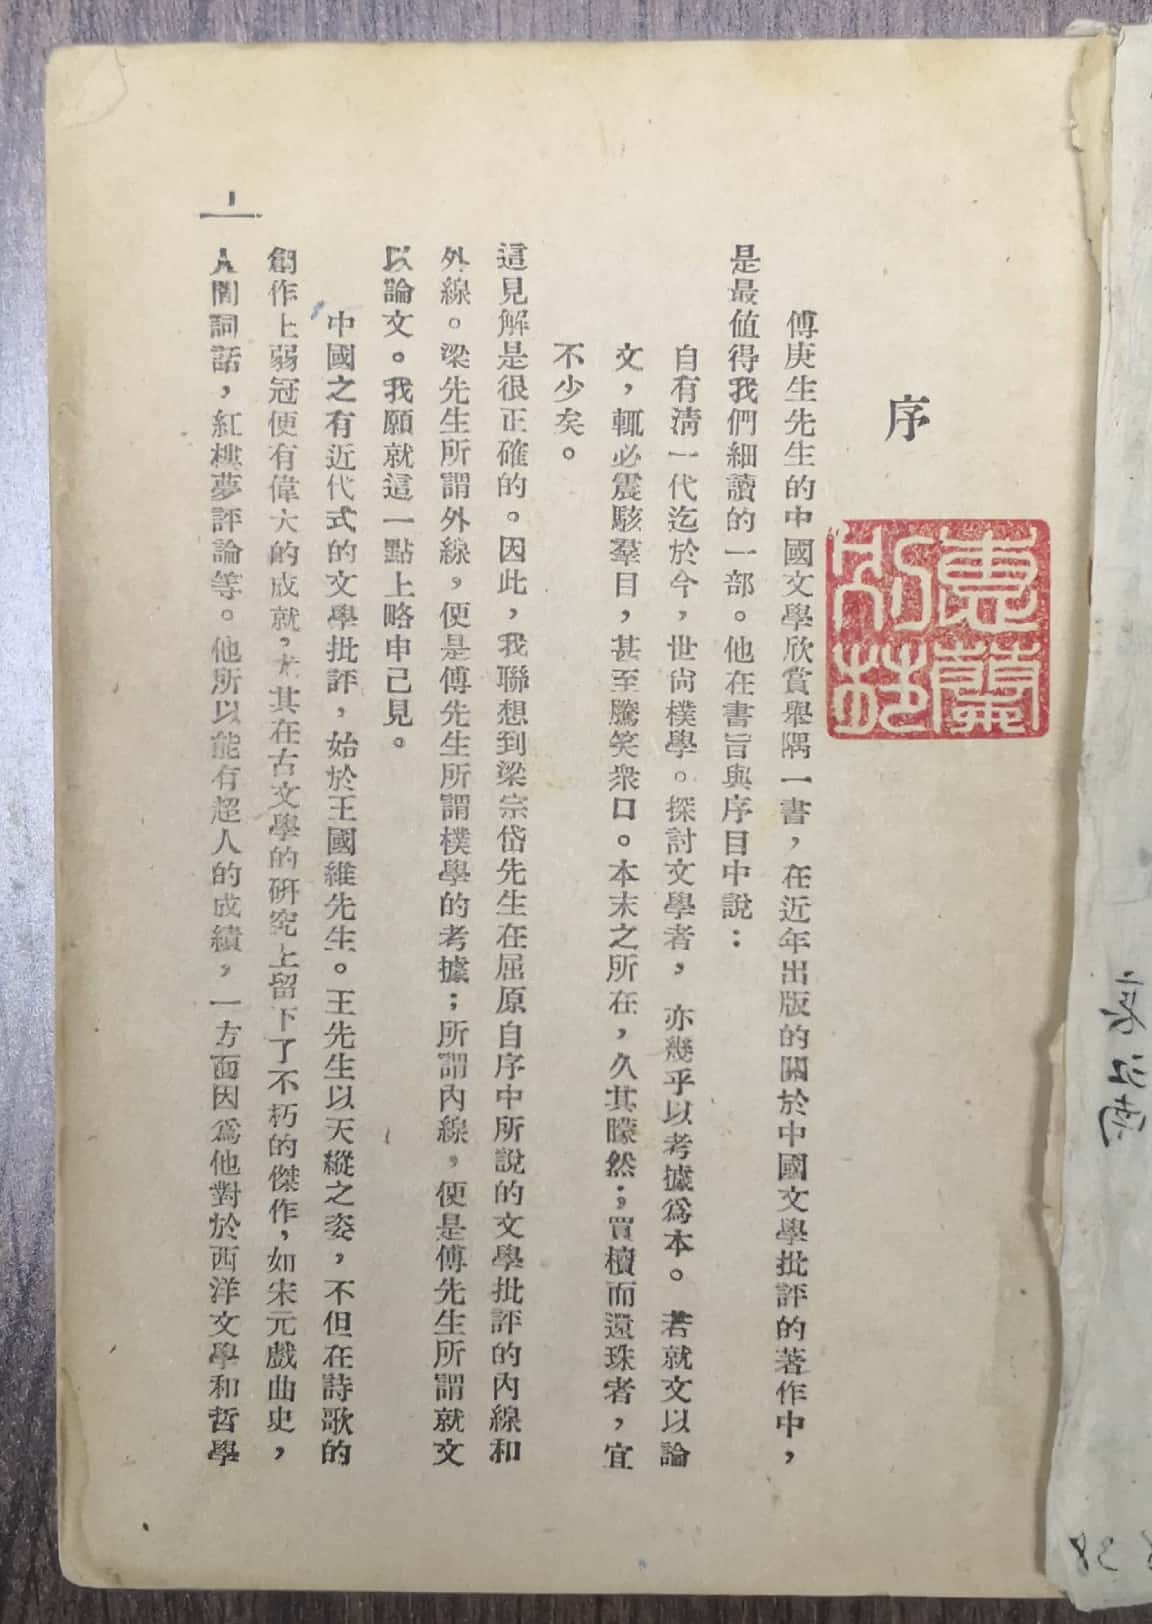 序
傅庚生先生的中國文學欣賞舉隅一書，在近年出版的關於中國文學批評的著作中，
是最值得我們細讀的一部。他在書旨與序目中說：
自有淸一代迄於今，世尙樸學。探討文學者，亦幾乎以考據爲本。若就文以論
文，輒必震駭羣目，甚至騰笑衆口。本末之所在，久其矇然；買櫝而還珠者，宜
不少矣。
這見解是很正確的。因此，我聯想到梁宗岱先生在屈原自序中所說的文學批評的內線和
外線。梁先生所謂外線，便是傅先生所謂樸學的考據；所謂內線，便是傅先生所謂就文
以論文。我願就這一點上略申己見。
中國之有近代式的文學批評，始於王國維先生。王先生以天縱之姿，不但在詩歌的
創作上弱冠便有偉大的成就，尤其在古文學的研究上留下了不朽的傑作，如宋元戲曲史，
人間詞話，紅樓夢評論等。他所以能有超人的成績，一方面因爲他對於西洋文學和哲學
1
江南
38